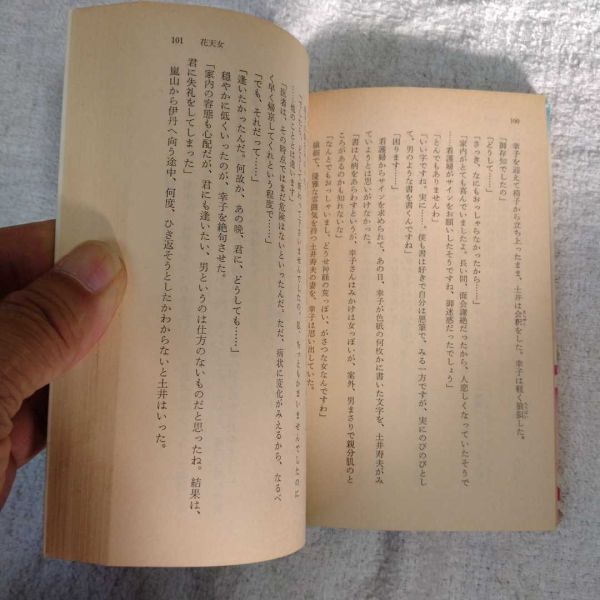 100
幸子を迎えて椅子から立ち上ったまま、土井は会釈をした。幸子は軽く狼狽した。
「御存知でしたの」
「どうして……」
「さっき、なにもおっしゃらなかったから……」
「家内がとても喜んでいましたよ。長い間、面会謝絶だったから、人恋しくなっていたそうで
……看護婦がサインをお願いしたそうですね、御迷惑だったでしょう」
「とんでもありませんわ」
「いい字ですね、実に……。使も書は好きで自分は悪筆で、みる一方ですが、実にのびのびとし
て、男のような書を書くんですね」
「困ります……」
看護婦からサインを求められて、あの日、幸子が色紙の何枚かに書いた文字を、土井寿夫がみ
ていようとは思いがけなかった。
「書は人柄をあらわすというが、幸子さんはみかけは女っぽいが、案外、男まさりで親分肌のと
ころがあるのかも知れないな」
「なんとでもおっしゃいまし、どうせ神経の荒っぽい、がさつな女なんですわ」
優雅な雰囲気を持つ土井寿夫の妻を、幸子は思い出していた。
101 花天女
「医者は、その時点ではまだ危険はないといったんだ。ただ、病状に変化がみえるから、なるべ
く早く帰京してくれという程度で……」
「でも、それだって……」
「逢いたかったんだ。何故か、あの晩、君に、どうしても……」
穏やかに低くいったのが、幸子を絶句させた。
「家内の容態も心配だが、君にも逢いたい、男というのは仕方のないものだと思ったね。結果は、
君に失礼をしてしまった」
嵐山から伊丹へ向う途中、何度、ひき返そうとしたかわからないと土井はいった。